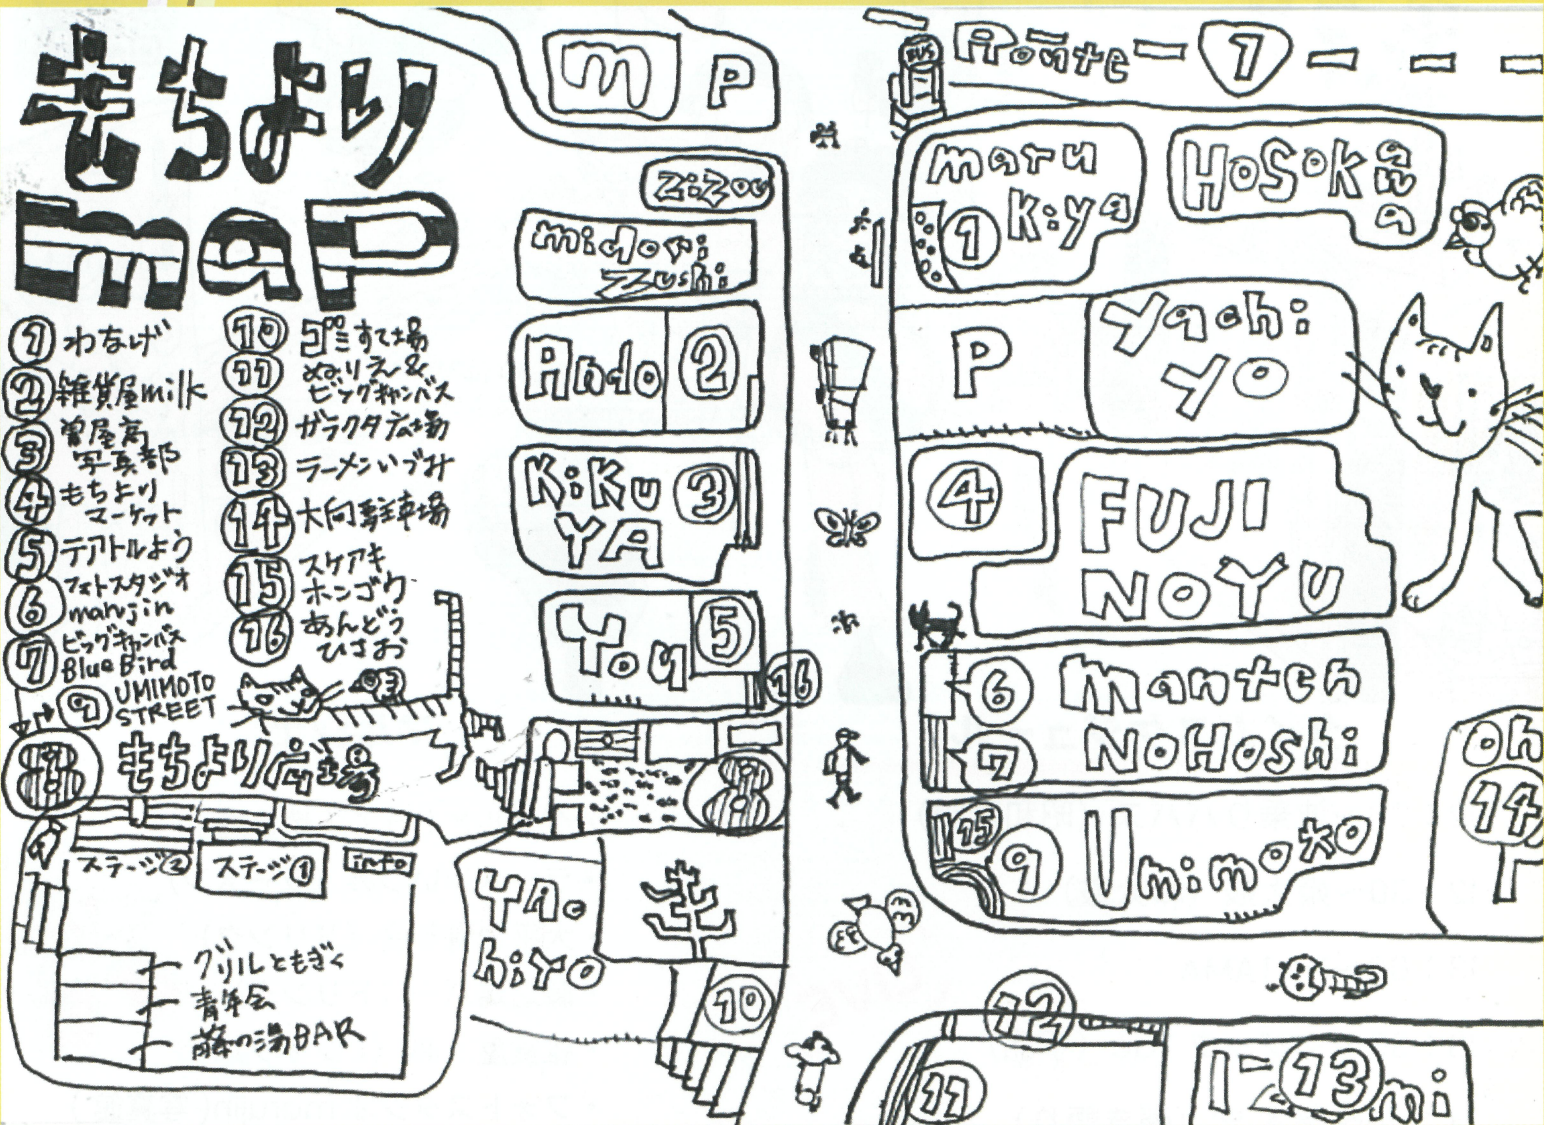 もちより
map
① わなげ
② 雑貨屋milk
③ 曽屋高
写真部
④ もちより
マーケット
⑤ テアトルよう
⑥ フォトスタジオ
marujin
⑦ ビッグキャンバス
Blue Bird
⑨ UMIMOTO
STREET
⑧ もちより広場
⑩ ゴミすて場
⑪ ぬりえ&
ビッグキャンバス
⑫ ガラクタ広場
⑬ ラーメンいづみ
⑭ 大向駐車場
⑮ スケアキ
ホンゴク
⑯ あんどう
ひさお
ステージ②
ステージ①
info
グリルともぎく
青年会
藤の湯BAR
m
P
Zizou
midori
Zushi
Ando
②
KiKu
YA
③
You
⑤
⑯
⑧
YAc
hiYo
⑩
BUS
Route 1
maru
Kiya
①
HOSOKawa
P
Yachi
YO
④
FUJI
NOYU
⑥
Manten
⑦
NoHoshi
⑮
⑨
Umimoto
oh
⑭
⑫
⑪
⑬
mi